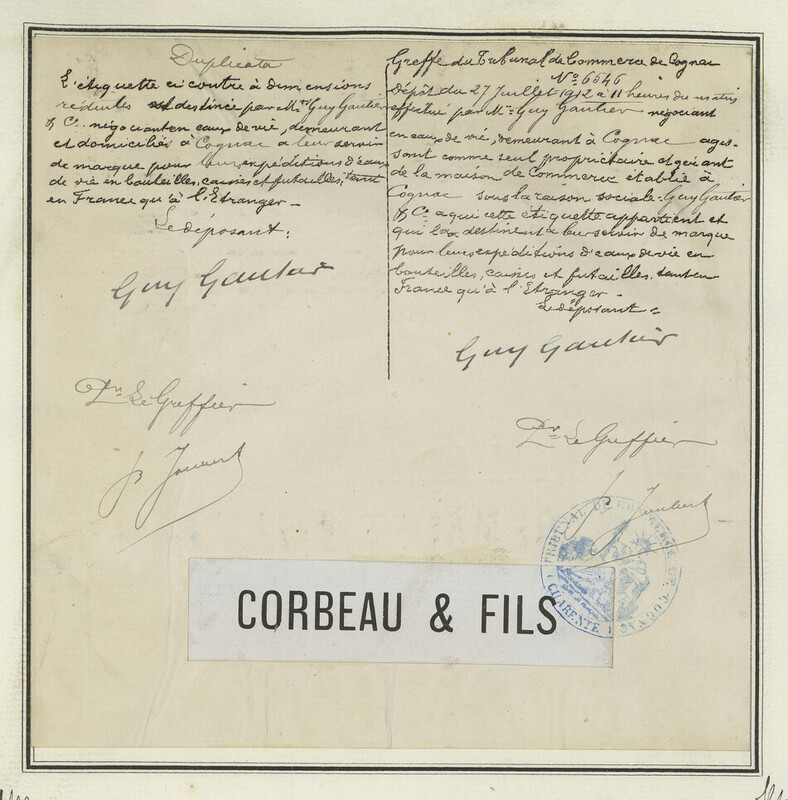 Duplicata
L'étiquette ci contre à dimensions
réduites est destinée par Mr Guy Gautier
& Co. négociant en eaux de vie, demeurant
et domiciliés à Cognac a leur servir
de marque pour leurs expéditions d'eaux
de vie en bouteilles, caisses et futailles, tant
en France qu'à l'Etranger -
Le déposant:
Guy Gautier
Pr Le Greffier
Joubert
Greffe du Tribunal de Commerce de Cognac
No 6546
Dépôt du 27 Juillet 1912 à 11 heures du matin
effectué par Mr Guy Gautier négociant
en eaux de vie, demeurant à Cognac agis-
sant comme seul propriétaire et gérant
de la maison de Commerce établie à
Cognac sous la raison sociale: Guy Gautier
& Co a qui cette étiquette appartient et
qui la destinent a leur servir de marque
pour leurs expéditions d'eaux de vie en
bouteilles, caisses et futailles, tant en
France qu'à l'Etranger -
Le déposant:
Guy Gautier
Pr Le Greffier
Joubert
TRIBUNAL DE COMMERCE DE COGNAC
(CHARENTE)
CORBEAU & FILS